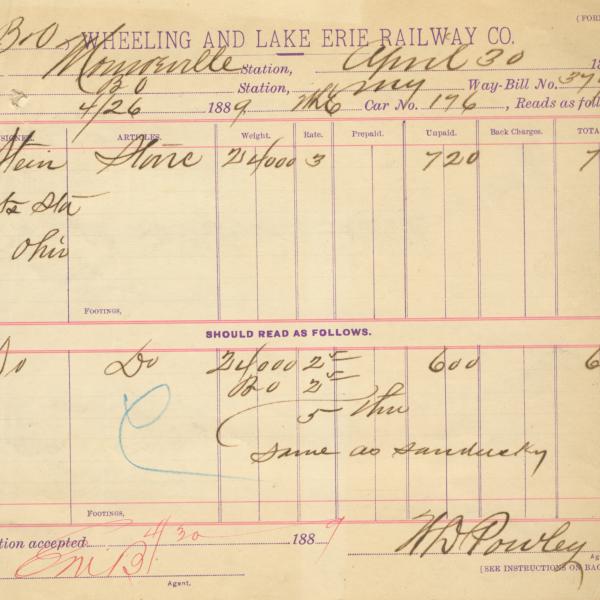 (FOR
B&O WHEELING AND LAKE ERIE RAILWAY CO.
Monroeville Station, April 30 18
BO Station, my Way-Bill No. 37
4/26 1889 W&LE Car No. 176, Reads as foll
SIGNEE. ARTICLES. Weight. Rate. Prepaid. Unpaid. Back Charges. TOTA
Stein Stone 24000 3 720 7
Sta
Ohio
FOOTINGS,
SHOULD READ AS FOLLOWS.
Do Do 24000 2 5 600 6
BO 2 5
5 thru
same as sandusky
FOOTINGS,
tion accepted 4/30 1889
Agent.
WD Powley
Ag
(SEE INSTRUCTIONS ON BAC